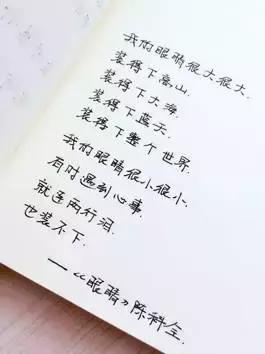 我的眼睛很大很大.
装得下高山.
装得下大海.
装得下蓝天.
装得下整个世界.
我的眼睛很小很小.
有时遇到心事.
就连两行泪.
也装不下.
——《眼睛》陈科全.